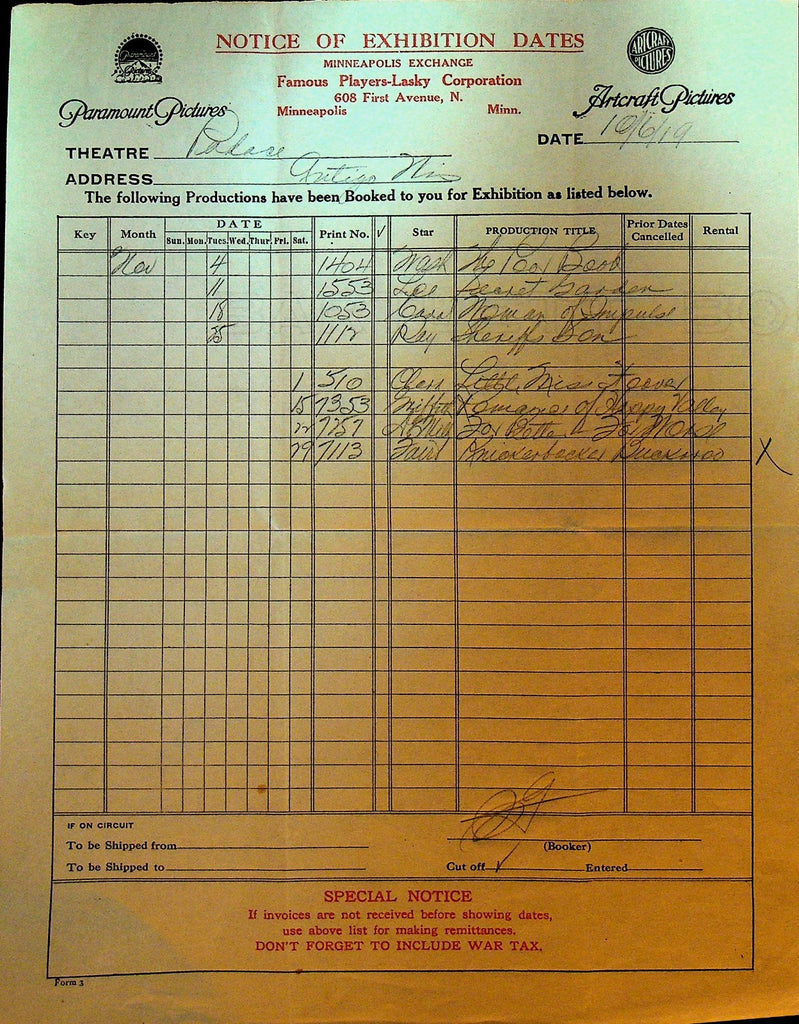 NOTICE OF EXHIBITION DATES
MINNEAPOLIS EXCHANGE
Famous Players-Lasky Corporation
608 First Avenue, N.
Minneapolis Minn.
Paramount Pictures
ARTCRAFT PICTURES
Paramount Pictures Artcraft Pictures
DATE 10/6/19
THEATRE Palace
ADDRESS Antigo Wis
The following Productions have been Booked to you for Exhibition as listed below.
Key Month DATE Print No. ✓ Star PRODUCTION TITLE Prior Dates Cancelled Rental
Sun. Mon. Tues. Wed. Thur. Fri. Sat.
Nov 4 1404 Wash The Poor Boob
11 1553 Lee Secret Garden
18 1053 Woman of Impulse
25 1112 Ray Sheriffs Son
1 510 Clark Little Miss Hoover
15 7353 Griffith Romance of Happy Valley
22 7257 For Better or For Worse
29 7113 Fair Knickerbocker Buckaroo X
IF ON CIRCUIT
To be Shipped from
(Booker)
To be Shipped to
Cut off ✓ Entered
SPECIAL NOTICE
If invoices are not received before showing dates,
use above list for making remittances.
DON'T FORGET TO INCLUDE WAR TAX.
Form 3